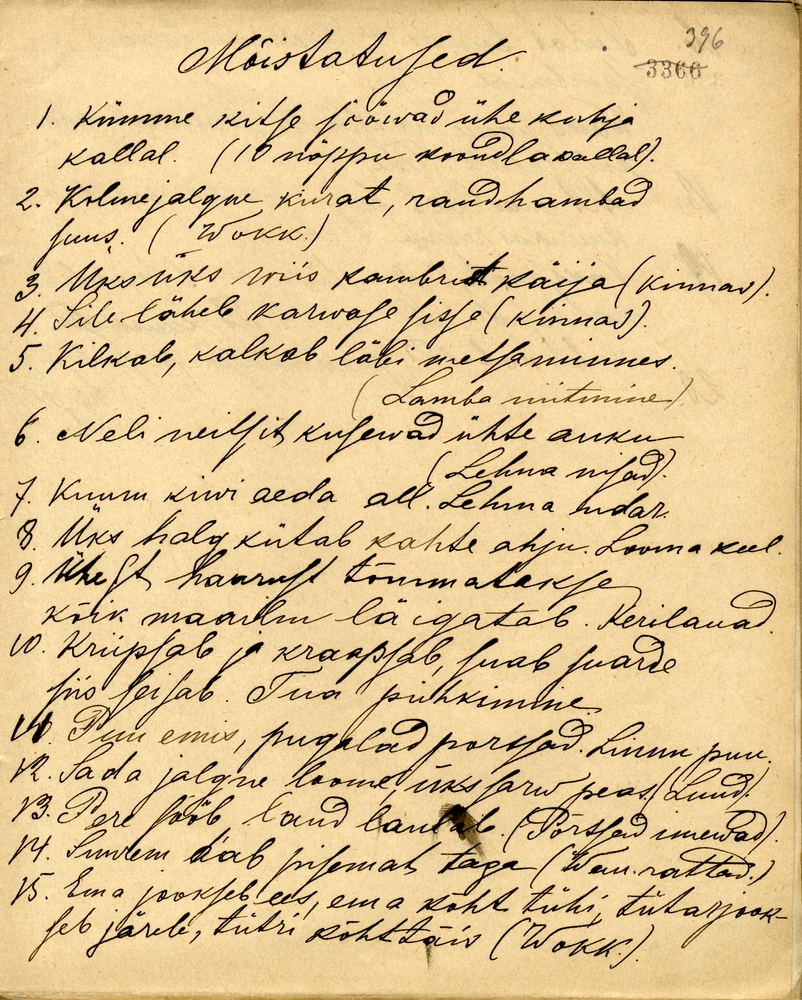 396
3366
Mõistatused.
1. Kümme kitse söövad ühe kuhja
kallal. (10 näppu koondla kallal).
2. Kolmejalgne kurat, raudhambad
suus. (Wokk.)
3. Üks üks wiis kambrist käija (kinnas).
4. Sile läheb karwase sisse (kinnas).
5. Kilkab, kalkab läbi metsa minnes.
(Lamba niitmine)
6. Neli neitsit kusewad ühte auku
(Lehma nisad).
7. Kuum kiwi aeda all. Lehma udar.
8. Üks halg kütab kahte ahju. Looma keel.
9. Ühest haarust tõmmatakse
kõik maailm läigatab. Kerilauad.
10. Kriipsab ja kraapsab, suab suarde
siis seisab. Tua pühkimine.
11. Puu emis, pugalad porssad. Linnu puu.
12. Sada jalgne loome, üks sarw peas. (Luud).
13. Pere sööb laud laulab. (Põrssad imewad).
14. Suurem aab pisemat taga (Wan. rattad.)
15. Ema jookseb ees, ema kõht tühi, tütar jook-
seb järele, tütri kõht täis (Wokk.).